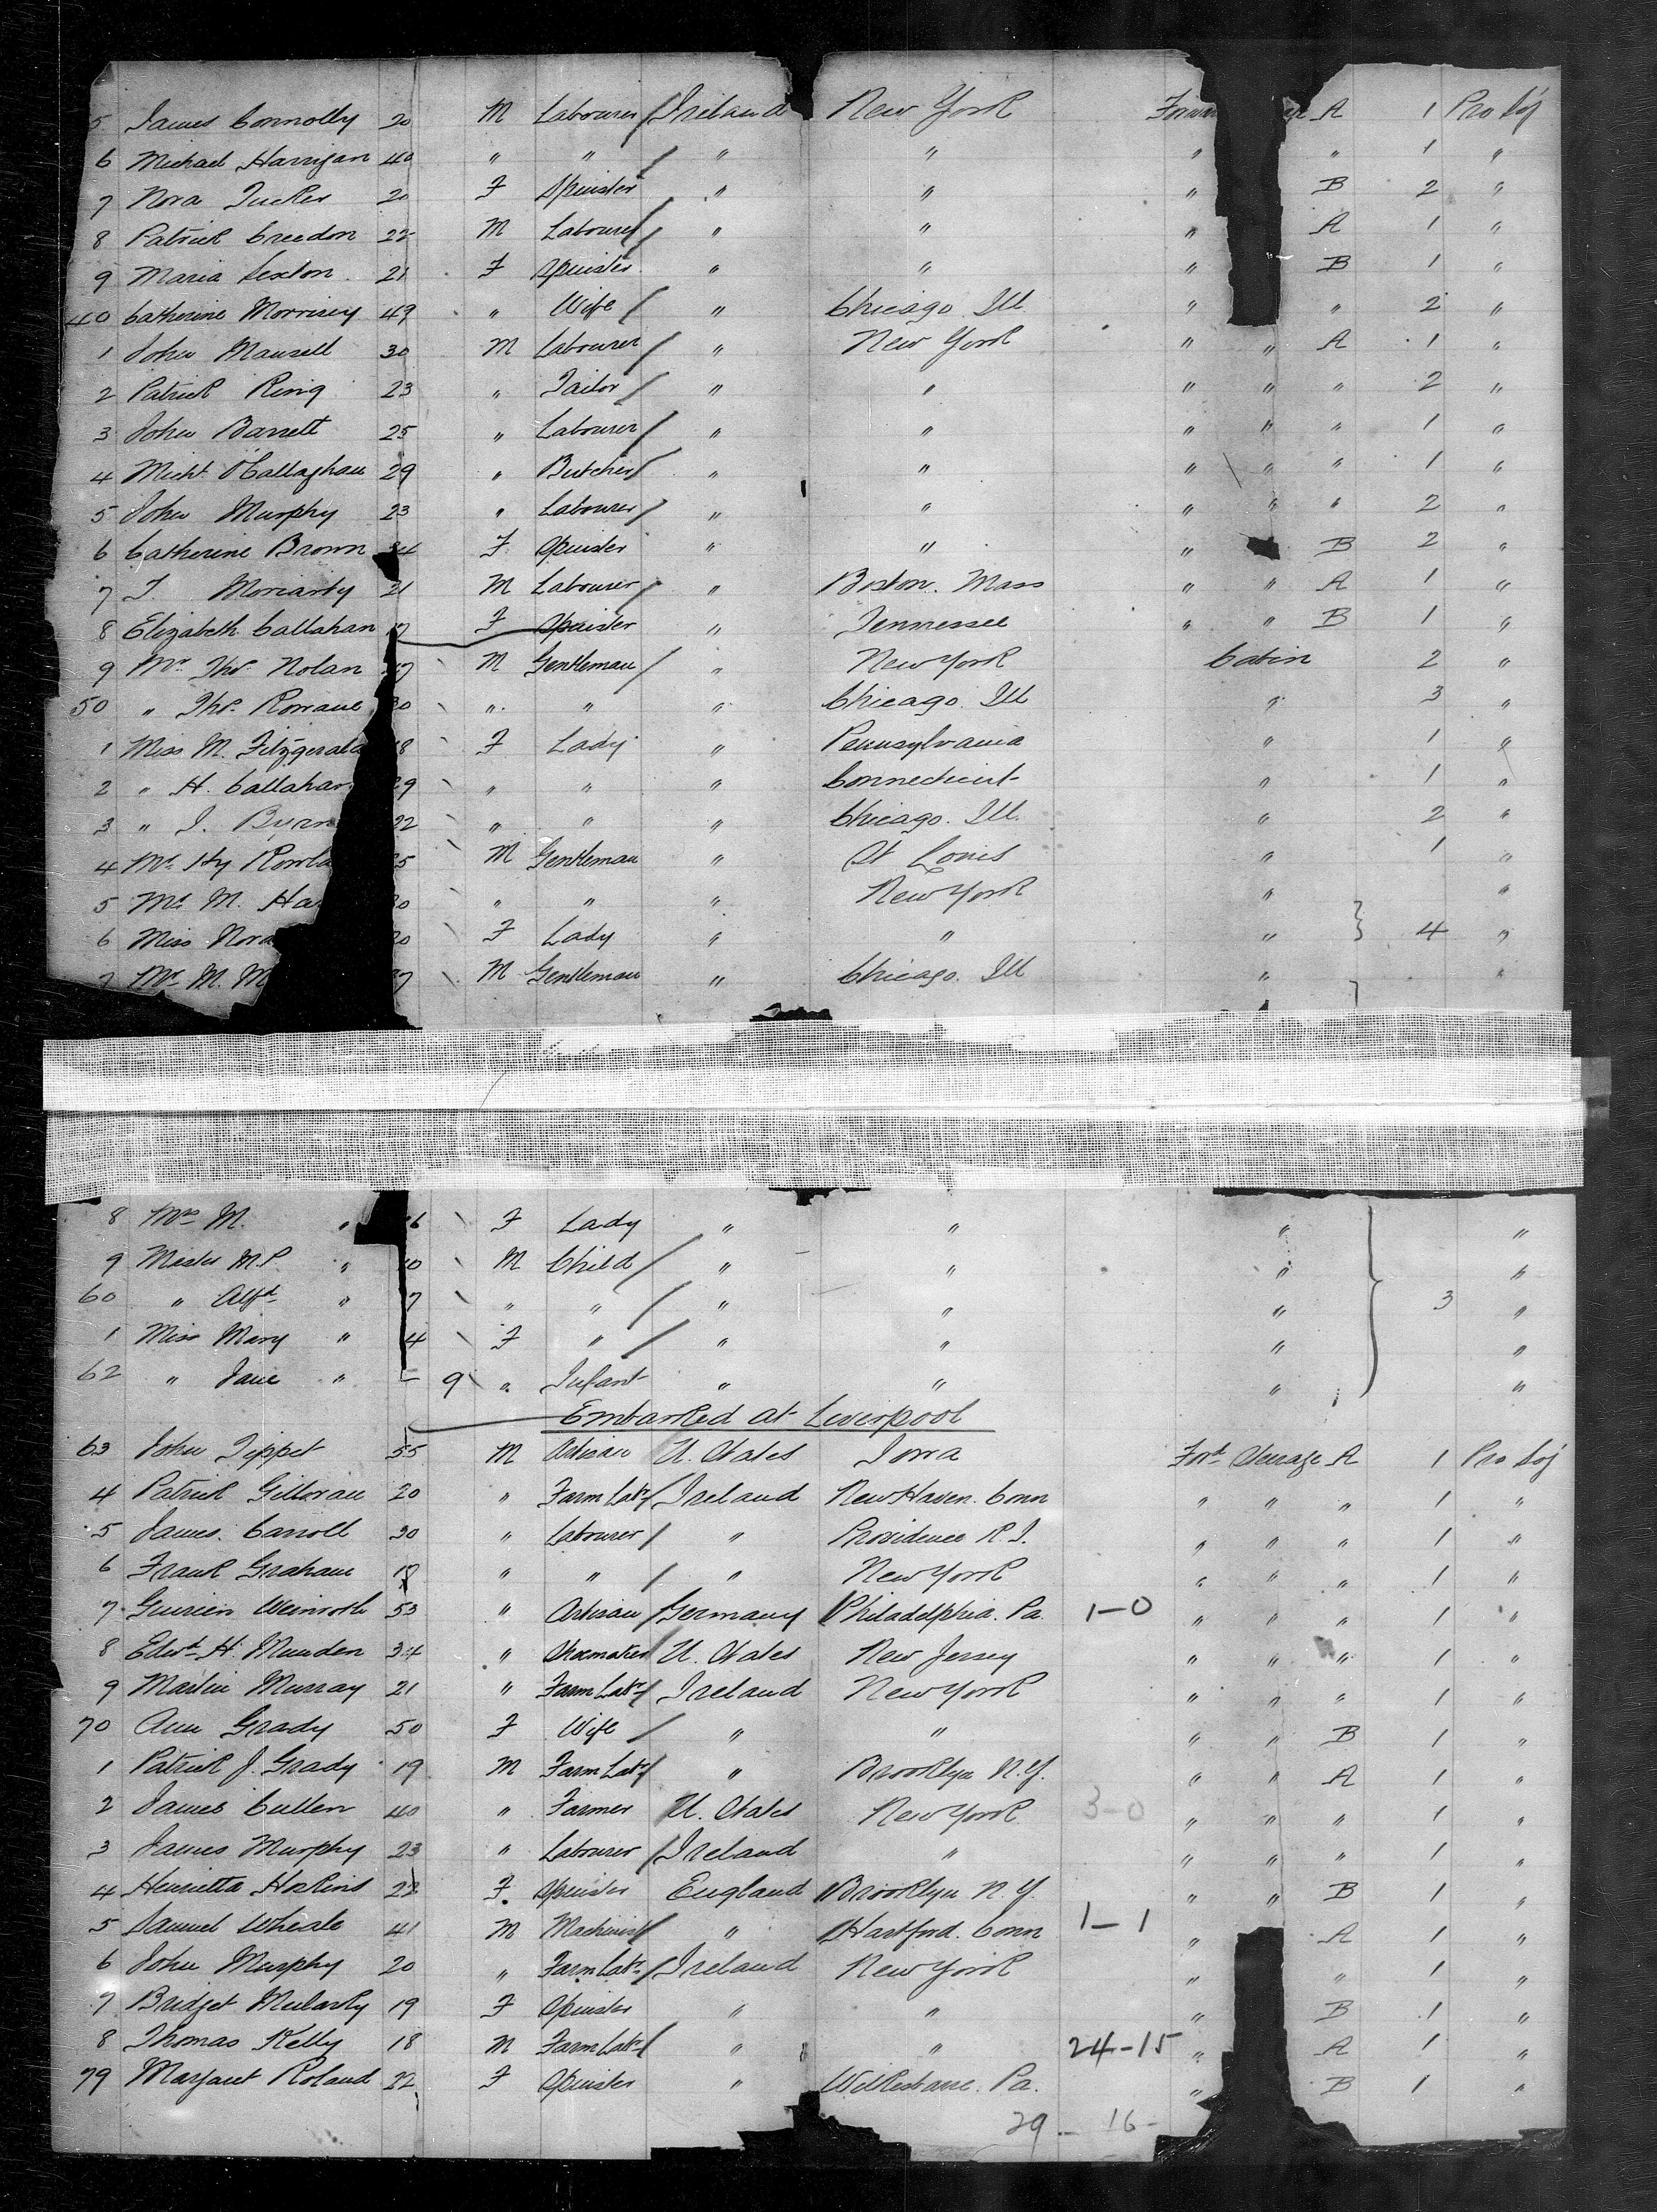 5 James Connolly 20 M Labourer Ireland New York A 1 Pro Soj
6 Michael Harrigan 40 " " " " " " 1 "
7 Nora Tucker 20 F Spinster " " " B 2 "
8 Patrick Creedon 22 M Labourer " " " A 1 "
9 Maria Sexton 21 F Spinster " " " B 1 "
40 Catherine Morrisey 49 " Wife " Chicago Ill " " 2 "
1 John Mansell 30 M Labourer " New York " " A 1 "
2 Patrick Ring 23 " Tailor " " " " " 2 "
3 John Barrett 25 " Labourer " " " " " 1 "
4 Michl O'Callaghan 29 " Butcher " " " " " 1 "
5 John Murphy 23 " Labourer " " " " " 2 "
6 Catherine Brown F Spinster " " " B 2 "
7 T. Moriarty 21 M Labourer " Boston. Mass " " A 1 "
8 Elizabeth Callahan F Spinster " Tennessee " " B 1 "
9 Mr. Thos. Nolan M Gentleman " New York Cabin 2 "
50 " Thos. " " " Chicago. Ill " 3 "
1 Miss M. Fitzgerald F Lady " Pennsylvania " 1 "
2 " H. Callahan 29 " " " Connecticut " 1 "
3 " J. 22 " " " Chicago. Ill. " 2 "
4 Mr. Hy M Gentleman " St Louis " 1 "
5 Mr. M. " " " New York " "
6 Miss Nora F Lady " " " 4 "
7 Mr. M. M Gentleman " Chicago. Ill " "
8 Mrs M. " F Lady " " " "
9 Master M.P. " M Child " " " "
60 " Alfd " 7 " " " " " 3 "
1 Miss Mary " 4 F " " " " "
62 " Jane " 9 " Infant " " " "
Embarked at Liverpool
63 John Tippet 55 M Artisan U. States Iowa Ford Steerage A 1 Pro Soj
4 Patrick Gilloran 20 " Farm Labr Ireland New Haven. Conn " " " 1 "
5 James Carroll 30 " Labourer " Providence R.I. " " " 1 "
6 Frank Graham 18 " " " New York " " " 1 "
7 Weinroth 53 " Artisan Germany Philadelphia. Pa. 1-0 " " " 1 "
8 Edwd H. Munden 34 " U. States New Jersey " " " 1 "
9 Martin Murray 21 " Farm Labr Ireland New York " " " 1 "
70 Ann Grady 50 F Wife " " " " B 1 "
1 Patrick J. Grady 19 M Farm Labr " Brooklyn N.Y. " " A 1 "
2 James Cullen 40 " Farmer U. States New York 3-0 " " " 1 "
3 James Murphy 23 " Labourer Ireland " " " " 1 "
4 Henrietta Hoskins 22 F Spinster England Brooklyn N.Y. " " B 1 "
5 Samuel Wheale 41 M Machinist " Hartford. Conn 1-1 " A 1 "
6 John Murphy 20 " Farm Labr Ireland New York " " 1 "
7 Bridget Mularky 19 F Spinster " " " B 1 "
8 Thomas Kelly 18 M Farm Labr " " 24-15 " A 1 "
79 Margaret Roland 22 F Spinster " Wilkesbarre. Pa. " B 1 "
29 - 16 -